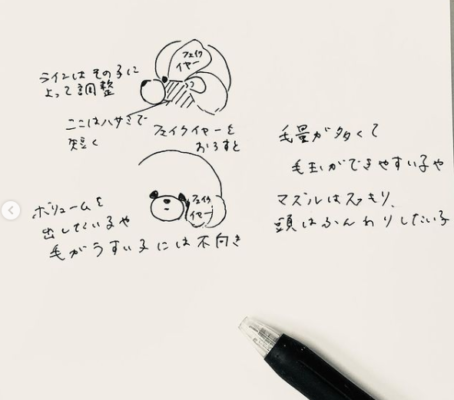 ラインはその子に
よって調整
フェイク
イヤー
ここはハサミで
短く
フェイクイヤーを
おろすと
フェイク
イヤー
ボリュームを
出したい子や
毛がうすい子には不向き
毛量が多くて
毛玉ができやすい子や
マズルはスッキリ、
頭はふんわりしたい子